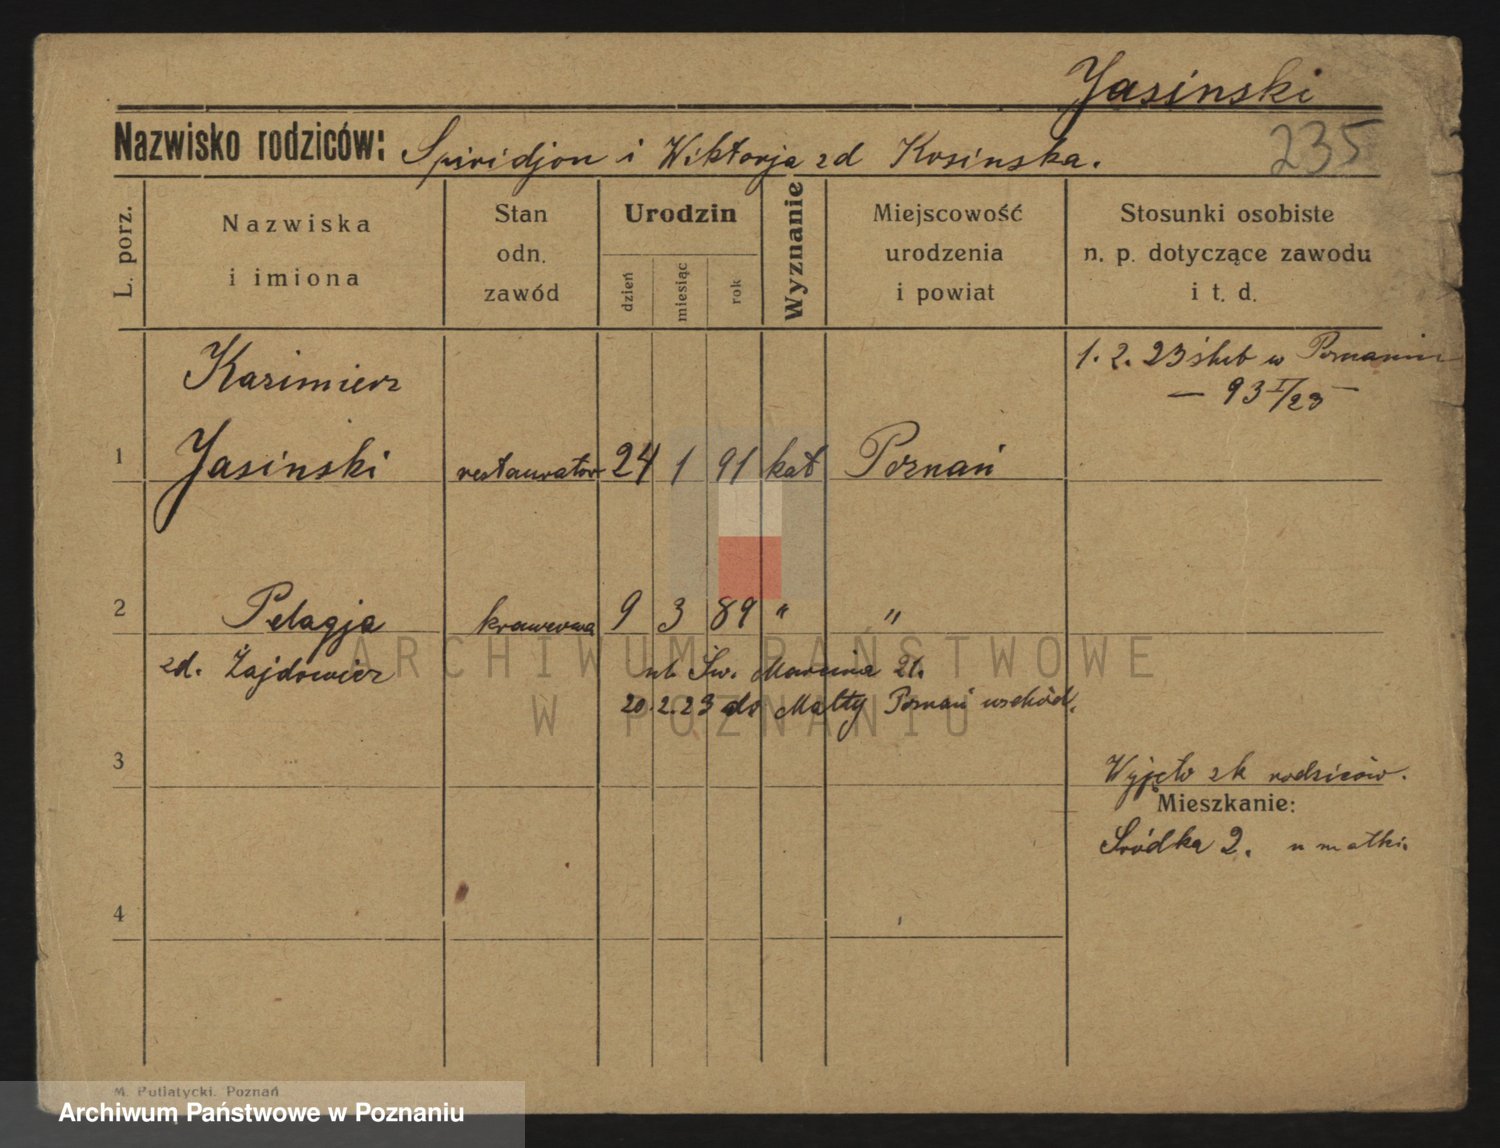 Jasinski
Nazwisko rodziców: Spiridjon i Wiktorja zd Kosinska.
235
L. porz.
Nazwiska
i imiona
Stan
odn.
zawód
Urodzin
dzień
miesiąc
rok
Wyznanie
Miejscowość
urodzenia
i powiat
Stosunki osobiste
n. p. dotyczące zawodu
i t. d.
1. 2. 23 ślub w Poznaniu
— 93 I/23 —
Kazimierz
1 Jasinski restaurator 24 1 91 kat Poznań
2 Pelagja krawcowa 9 3 89 " "
zd. Żajdowicz
ul. Św. Marcina 21.
20.2.23 do Malty Poznań wschód.
3
Wyjęto z k rodziców.
Mieszkanie:
Sródka 2. u matki.
4
ARCHIWUM PAŃSTWOWE
W POZNANIU
M. Putiatycki. Poznań
Archiwum Państwowe w Poznaniu